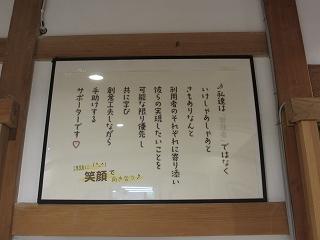 私達は ではなく
いけしゃあしゃあと
さもありなんと
利用者のそれぞれに寄り添い
彼らの実現したいことを
可能な限り優先し
共に学び
創意工夫しながら
手助けする
サポーターです♡
笑顔で